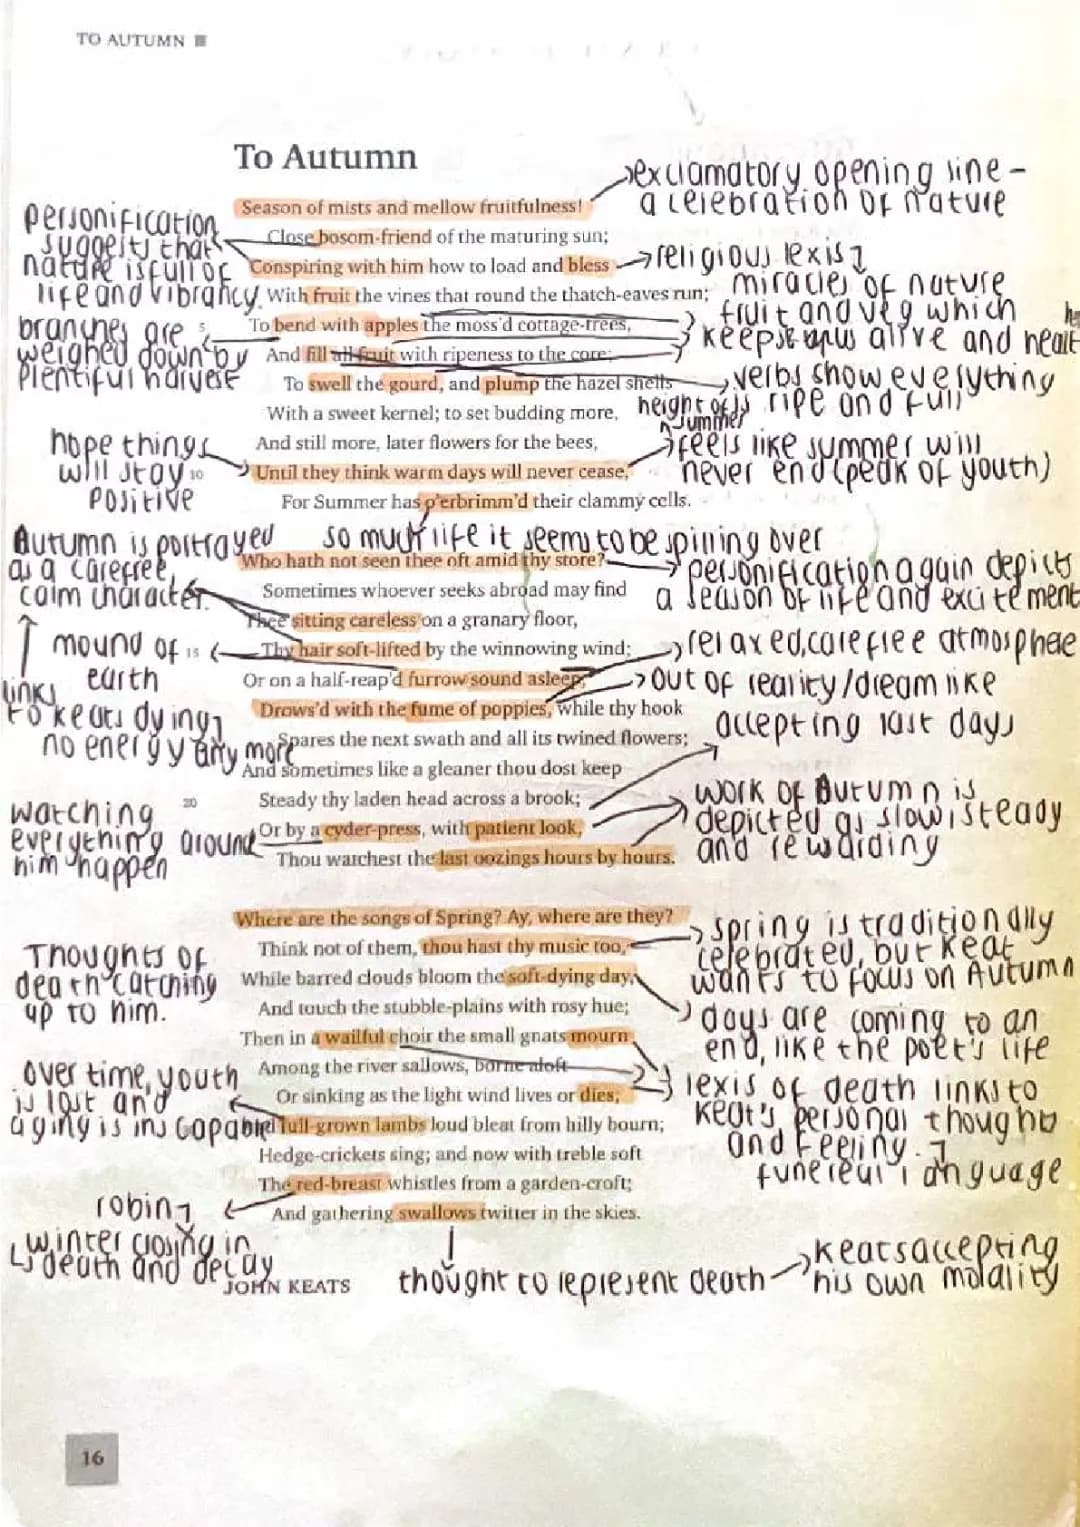 TO AUTUMN
To Autumn
Season of mists and mellow fruitfulness!
Close bosom-friend of the maturing sun;
Conspiring with him how to load and bless
With fruit the vines that round the thatch-eaves run;
5
To bend with apples the moss'd cottage-trees,
And fill all fruit with ripeness to the core;
To swell the gourd, and plump the hazel shells
With a sweet kernel; to set budding more,
And still more, later flowers for the bees,
10
Until they think warm days will never cease,
For Summer has o'erbrimm'd their clammy cells.
Who hath not seen thee oft amid thy store?
Sometimes whoever seeks abroad may find
Thee sitting careless on a granary floor,
15
Thy hair soft-lifted by the winnowing wind;
Or on a half-reap'd furrow sound asleep,
Drows'd with the fume of poppies, while thy hook
Spares the next swath and all its twined flowers;
And sometimes like a gleaner thou dost keep
20
Steady thy laden head across a brook;
Or by a cyder-press, with patient look,
Thou watchest the last oozings hours by hours.
Where are the songs of Spring? Ay, where are they?
Think not of them, thou hast thy music too,
While barred clouds bloom the soft-dying day,
And touch the stubble-plains with rosy hue;
Then in a wailful choir the small gnats mourn
Among the river sallows, borne aloft
Or sinking as the light wind lives or dies;
full-grown lambs loud bleat from hilly bourn;
Hedge-crickets sing; and now with treble soft
The red-breast whistles from a garden-croft;
And gathering swallows twitter in the skies.
JOHN KEATS
16
personification
suggests that
nature is full of
life and vibrancy.
branches are
weighed down by
plentiful harvest
hope things
will stay
positive
Autumn is portrayed
as a carefree,
calm character.
mound of
earth
links
to Keats dying
no energy any more
watching
everything around
him happen
Thoughts of
death catching
up to him.
over time, youth
is lost and
aging is
robin
winter closing in
death and decay
exclamatory opening line -
a celebration of nature
religious lexis
miracles of nature
fruit and veg which
alive and
verbs show everything
is ripe and full
height of
summer
feels like summer will
never end (peak of youth)
so much life it seems to be spilling over
personification again depicts
a season of life and excitement
relaxed, carefree atmosphere
out of reality/dream like
accepting last days
work of Autumn is
depicted as slow, steady
and rewarding
spring is traditionally
celebrated, but Keat
wants to focus on Autumn
days are coming to an
end, like the poet's life
lexis of death links to
Keat's personal thought
and feeling.
funereal language
thought to represent death
Keats accepting
his own morality